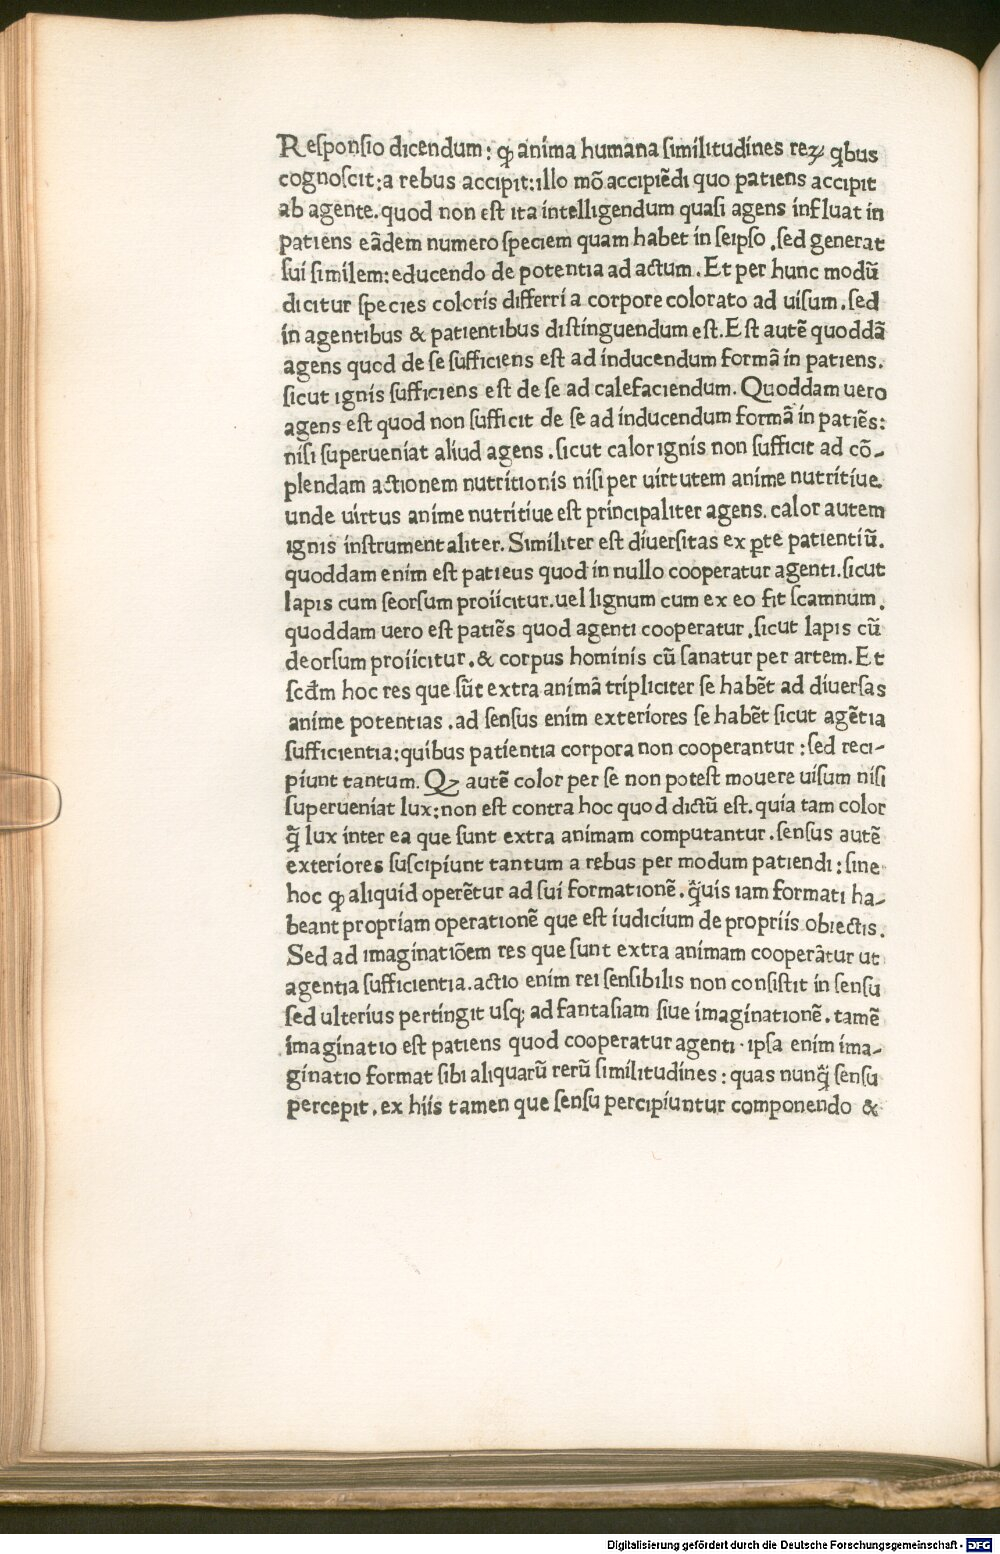 Reſponſio dicendum: ꝙ anima humana ſimilitudines reꝝ qͥbus
cognoſcit: a rebus accipit: illo mō accipiēdi quo patiens accipit
ab agente. quod non eſt ita intelligendum quaſi agens influat in
patiens eādem numero ſpeciem quam habet in ſeipſo. ſed generat
ſui ſimilem: educendo de potentia ad actum. Et per hunc modū
dicitur ſpecies coloris differri a corpore colorato ad uiſum. ſed
in agentibus & patientibus diſtinguendum eſt. Eſt autē quoddā
agens quod de ſe ſufficiens eſt ad inducendum formā in patiens.
ſicut ignis ſufficiens eſt de ſe ad calefaciendum. Quoddam uero
agens eſt quod non ſufficit de ſe ad inducendum formā in patiēs:
niſi ſuperueniat aliud agens. ſicut calor ignis non ſufficit ad cō-
plendam actionem nutritionis niſi per uirtutem anime nutritiue.
unde uirtus anime nutritiue eſt principaliter agens. calor autem
ignis inſtrumentaliter. Similiter eſt diuerſitas ex ꝑte patientiū.
quoddam enim eſt patieus quod in nullo cooperatur agenti. ſicut
lapis cum ſeorſum proiicitur. uel lignum cum ex eo fit ſcamnum.
quoddam uero eſt patiēs quod agenti cooperatur. ſicut lapis cū
deorſum proiicitur. & corpus hominis cū ſanatur per artem. Et
ſcd̄m hoc res que ſūt extra animā tripliciter ſe habēt ad diuerſas
anime potentias. ad ſenſus enim exteriores ſe habēt ſicut agētia
ſufficientia: quibus patientia corpora non cooperantur: ſed reci-
piunt tantum. Qꝫ autē color per ſe non poteſt mouere uiſum niſi
ſuperueniat lux: non eſt contra hoc quod dictū eſt. quia tam color
q̄ lux inter ea que ſunt extra animam computantur. ſenſus autē
exteriores ſuſcipiunt tantum a rebus per modum patiendi: ſine
hoc ꝙ aliquid operētur ad ſui formationē. q̄uis iam formati ha-
beant propriam operationē que eſt iudicium de propriis obiectis.
Sed ad imaginatiōem res que ſunt extra animam cooperātur ut
agentia ſufficientia. actio enim rei ſenſibilis non conſiſtit in ſenſu
ſed ulterius pertingit uſqꝫ ad fantaſiam ſiue imaginationē. tamē
imaginatio eſt patiens quod cooperatur agenti. ipſa enim ima-
ginatio format ſibi aliquarū rerū ſimilitudines: quas nunq̄ ſenſu
percepit. ex hiis tamen que ſenſu percipiuntur componendo &
Digitalisierung gefördert durch die Deutsche Forschungsgemeinschaft - DFG